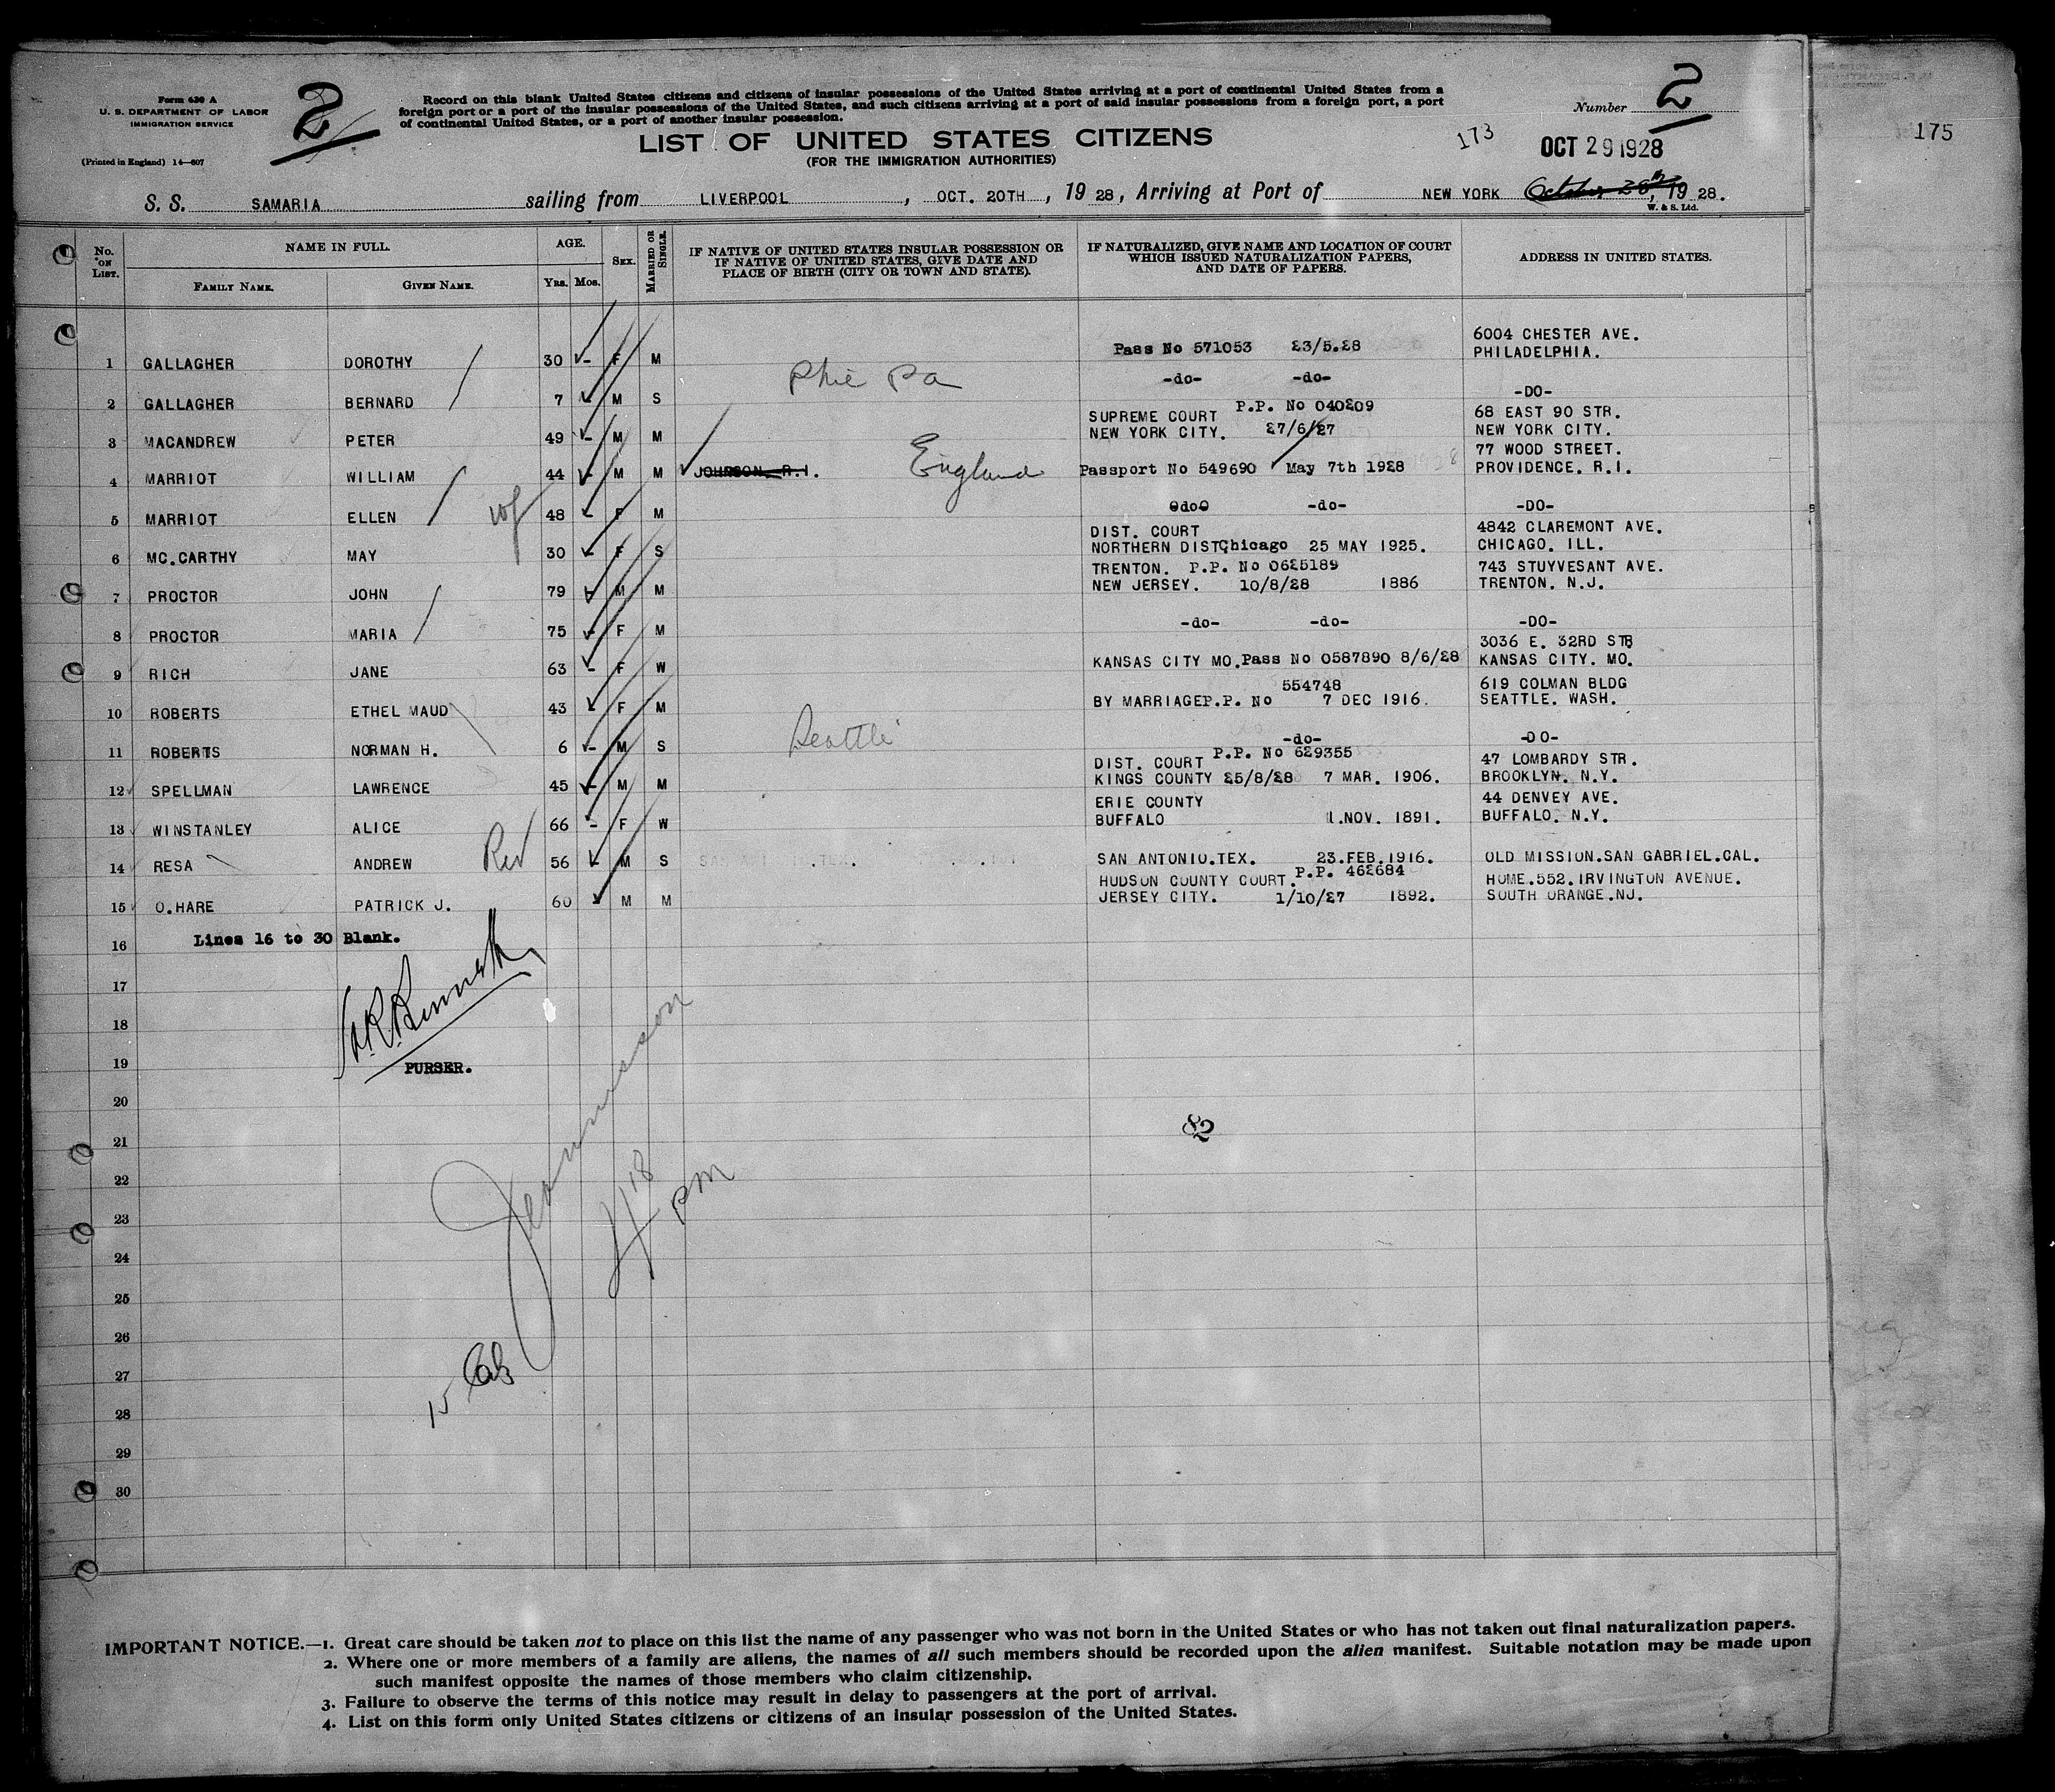 Form 630 A
U. S. DEPARTMENT OF LABOR
IMMIGRATION SERVICE
(Printed in England) 14—607
2
Record on this blank United States citizens and citizens of insular possessions of the United States arriving at a port of continental United States from a
foreign port or a port of the insular possessions of the United States, and such citizens arriving at a port of said insular possessions from a foreign port, a port
of continental United States, or a port of another insular possession.
Number 2
LIST OF UNITED STATES CITIZENS
(FOR THE IMMIGRATION AUTHORITIES)
173
OCT 29 1928
175
S. S. SAMARIA sailing from LIVERPOOL, OCT. 20TH, 19 28, Arriving at Port of NEW YORK October 28th, 19 28.
W. & S. Ltd.
No. ON LIST.
NAME IN FULL.
FAMILY NAME. GIVEN NAME.
AGE.
Yrs. Mos.
SEX.
MARRIED OR SINGLE.
IF NATIVE OF UNITED STATES INSULAR POSSESSION OR
IF NATIVE OF UNITED STATES, GIVE DATE AND
PLACE OF BIRTH (CITY OR TOWN AND STATE).
IF NATURALIZED, GIVE NAME AND LOCATION OF COURT
WHICH ISSUED NATURALIZATION PAPERS,
AND DATE OF PAPERS.
ADDRESS IN UNITED STATES.
6004 CHESTER AVE.
1 GALLAGHER DOROTHY 30 - F M Pass No 571053 23/5.28 PHILADELPHIA.
Phil Pa
2 GALLAGHER BERNARD 7 M S -do- -do- -DO-
SUPREME COURT P.P. No 040209 68 EAST 90 STR.
3 MACANDREW PETER 49 - M M NEW YORK CITY. 27/6/27 NEW YORK CITY.
77 WOOD STREET.
4 MARRIOT WILLIAM 44 - M M JOHNSON. R.I. England Passport No 549690 May 7th 1928 PROVIDENCE. R.I.
5 MARRIOT ELLEN wf 48 - F M -do- -do- -DO-
DIST. COURT 4842 CLAREMONT AVE.
6 MC.CARTHY MAY 30 - F S NORTHERN DIST Chicago 25 MAY 1925. CHICAGO. ILL.
TRENTON. P.P. No 0625189 743 STUYVESANT AVE.
7 PROCTOR JOHN 79 - M M NEW JERSEY. 10/8/28 1886 TRENTON. N.J.
8 PROCTOR MARIA 75 - F M -do- -do- -DO-
3036 E. 32RD STR
9 RICH JANE 63 - F W KANSAS CITY MO. Pass No 0587890 8/6/28 KANSAS CITY. MO.
554748 619 COLMAN BLDG
10 ROBERTS ETHEL MAUD 43 - F M BY MARRIAGE P.P. No 7 DEC 1916. SEATTLE. WASH.
11 ROBERTS NORMAN H. 6 - M S Seattle -do- -DO-
DIST. COURT P.P. No 629355 47 LOMBARDY STR.
12 SPELLMAN LAWRENCE 45 - M M KINGS COUNTY 25/8/28 7 MAR. 1906. BROOKLYN. N.Y.
ERIE COUNTY 44 DENVEY AVE.
13 WINSTANLEY ALICE 66 - F W BUFFALO 1.NOV. 1891. BUFFALO. N.Y.
14 RESA ANDREW Rev 56 - M S SAN ANTONIO.TEX. 23.FEB.1916. OLD MISSION.SAN GABRIEL.CAL.
HUDSON COUNTY COURT. P.P. 462684 HOME.552.IRVINGTON AVENUE.
15 O.HARE PATRICK J. 60 M M JERSEY CITY. 1/10/27 1892. SOUTH ORANGE.NJ.
16 Lines 16 to 30 Blank.
17
18
19 PURSER.
20
21
82
22
23
24
25
26
27
28
29
30
PM
15
IMPORTANT NOTICE.—1. Great care should be taken not to place on this list the name of any passenger who was not born in the United States or who has not taken out final naturalization papers.
2. Where one or more members of a family are aliens, the names of all such members should be recorded upon the alien manifest. Suitable notation may be made upon
such manifest opposite the names of those members who claim citizenship.
3. Failure to observe the terms of this notice may result in delay to passengers at the port of arrival.
4. List on this form only United States citizens or citizens of an insular possession of the United States.